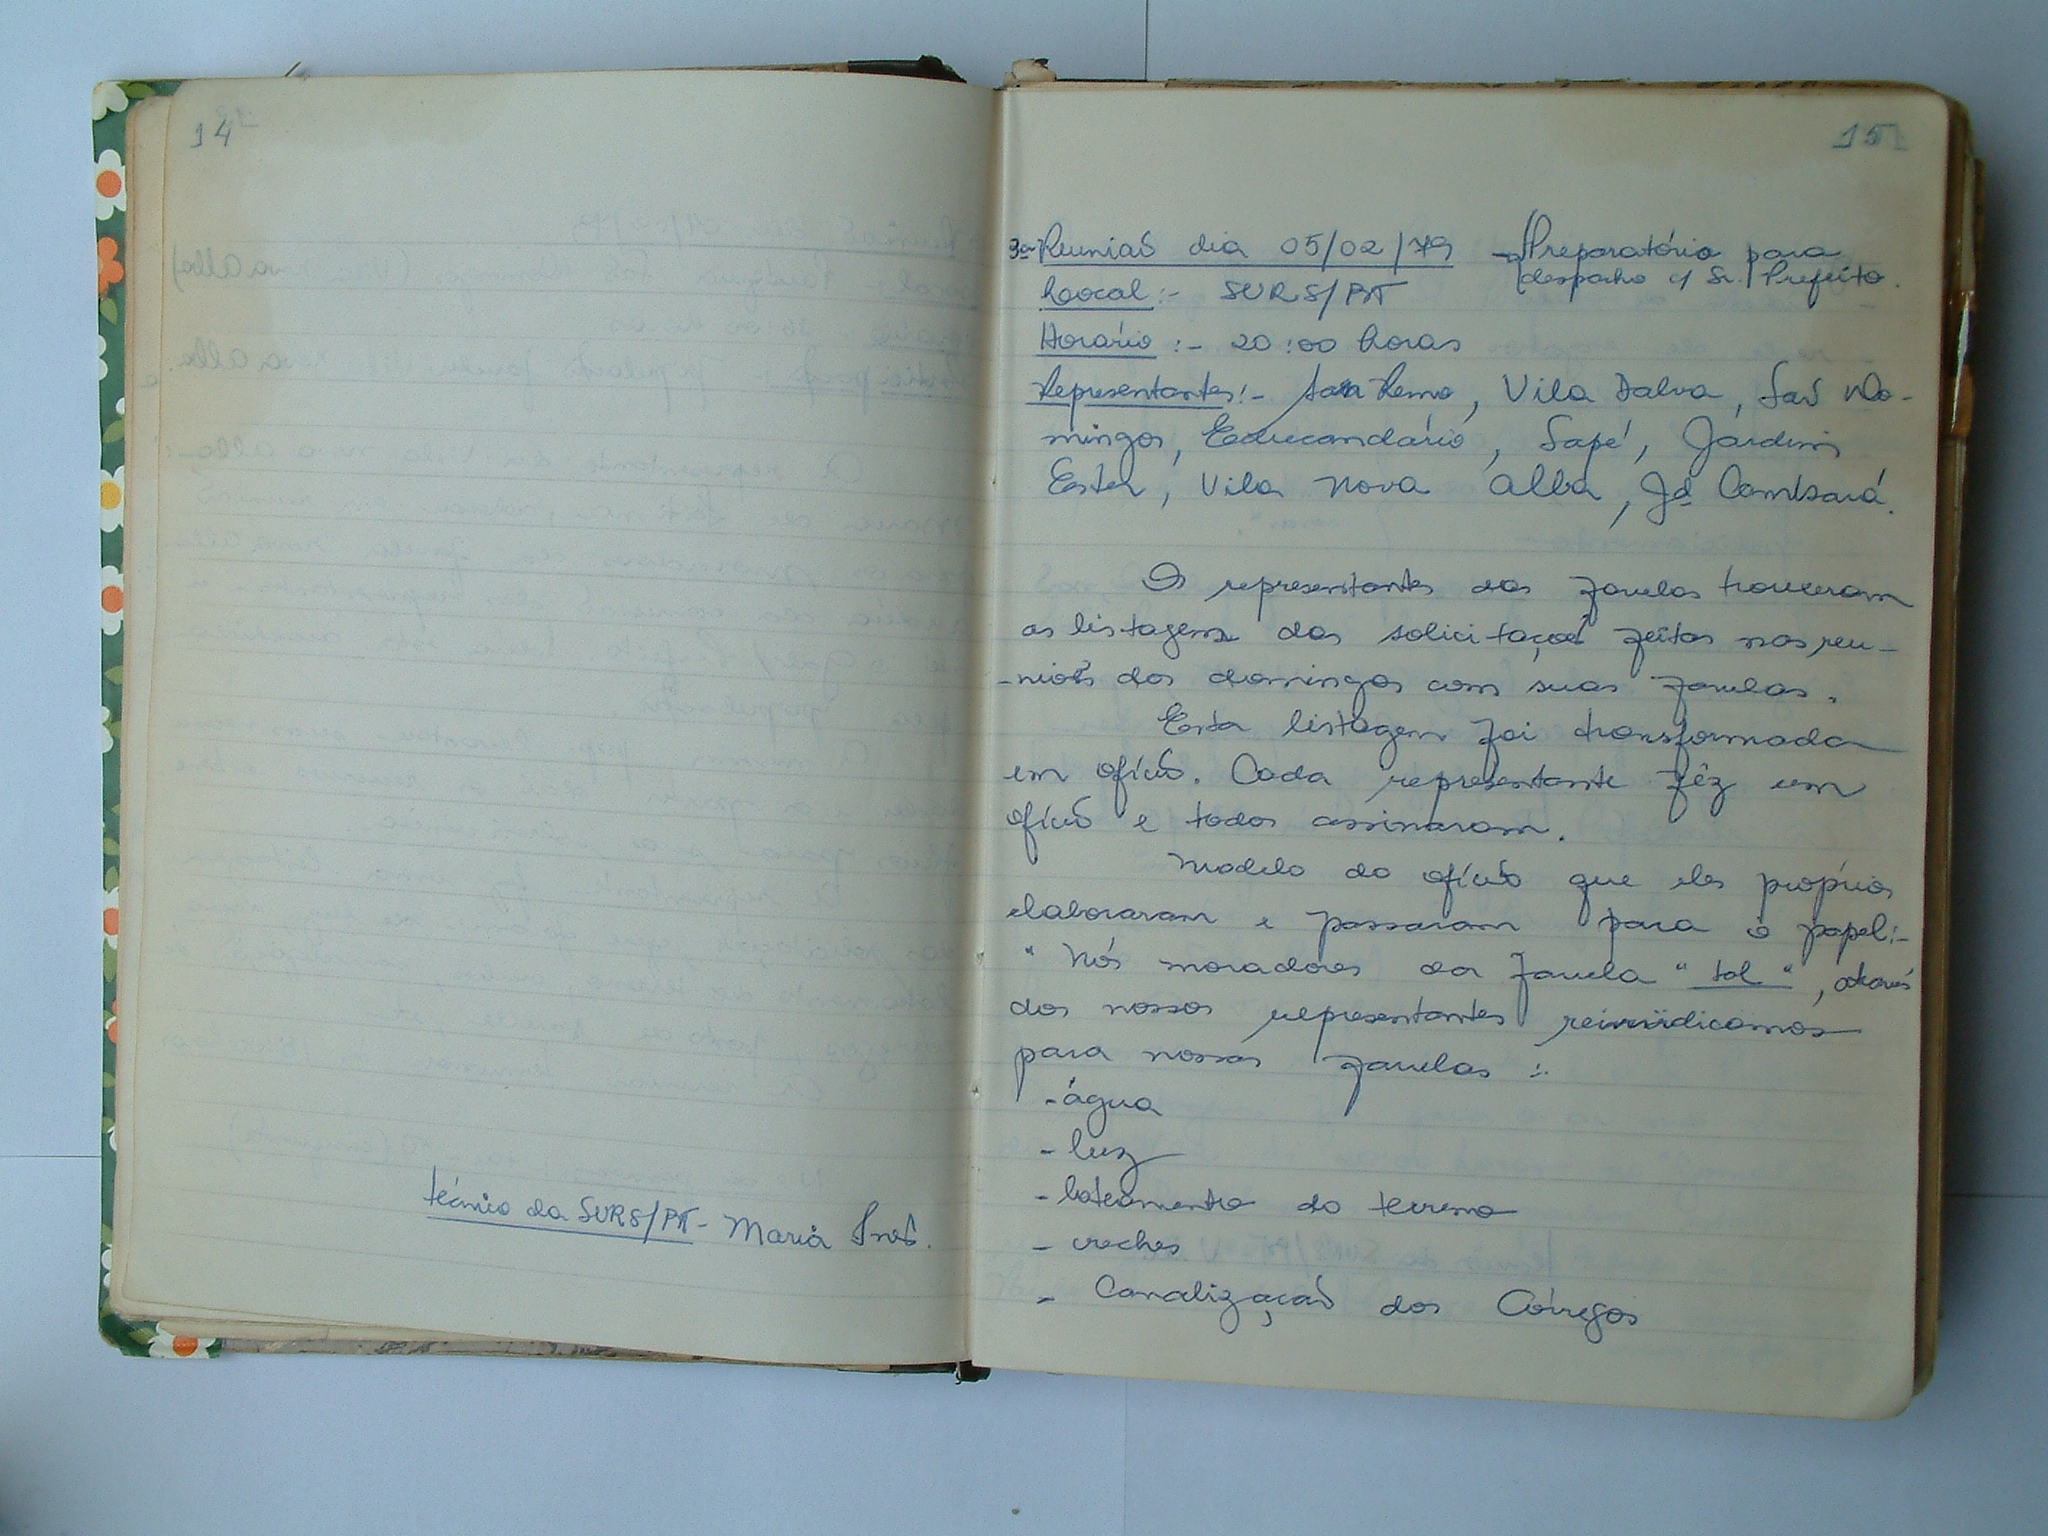 14
técnico da SURS/PT - Maria Inês.
15
3ª Reunião dia 05/02/79 - Preparatória para
despacho c/ Sr. Prefeito.
Local :- SURS/PT
Horário :- 20:00 horas
Representantes :- San Remo, Vila Dalva, São Do-
mingos, Educandário, Sapé, Jardim
Ester, Vila Nova Alba, Jd Cambará.
Os representantes das favelas trouxeram
as listagens das solicitações feitas nas reu-
-niões dos domingos com suas favelas.
Esta listagem foi transformada
em ofício. Cada representante fêz um
ofício e todos assinaram.
Modelo do ofício que eles próprios
elaboraram e passaram para o papel :-
" Nós moradores da favela " tal ", através
dos nossos representantes reivindicamos
para nossas favelas :
- água
- luz
- loteamento do terreno
- creches
- Canalização dos Córregos